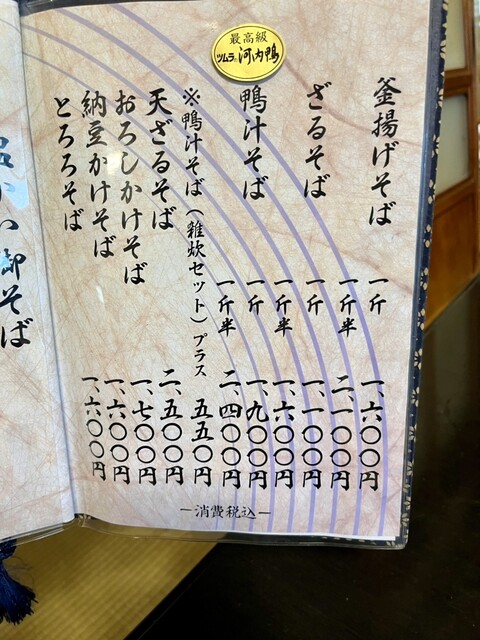 最高級
ツムラの河内鴨
釜揚げそば 一斤 一、六〇〇円
一斤半 二、一〇〇円
ざるそば 一斤 一、一〇〇円
一斤半 一、六〇〇円
鴨汁そば 一斤 一、九〇〇円
一斤半 二、四〇〇円
※鴨汁そば(雑炊セット)プラス 五五〇円
天ざるそば 二、五〇〇円
おろしかけそば 一、七〇〇円
納豆かけそば 一、六〇〇円
とろろそば 一、六〇〇円
—消費税込—
御そば